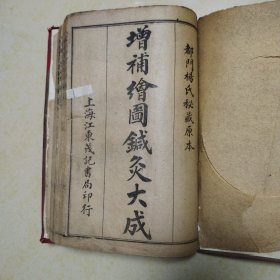 都門楊氏秘藏原本
增補繪圖鍼灸大成
上海江東茂記書局印行